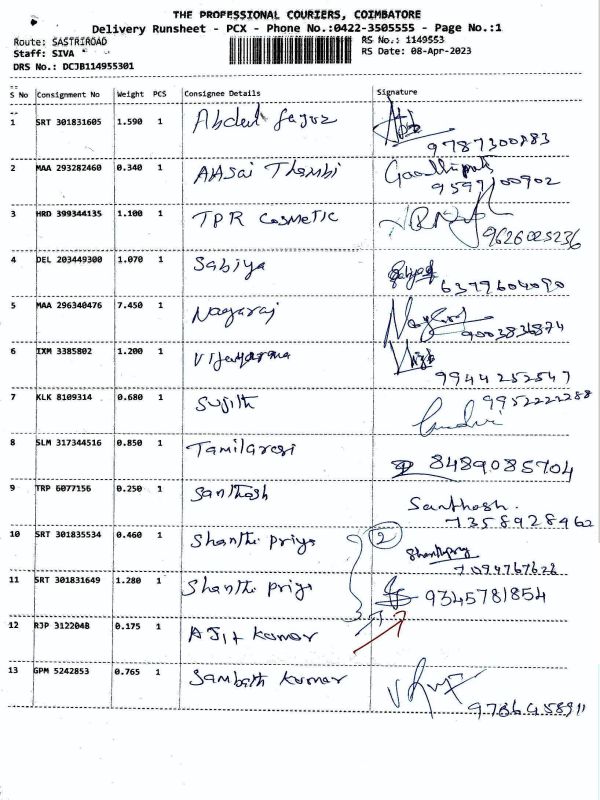 THE PROFESSIONAL COURIERS, COIMBATORE
Delivery Runsheet - PCX - Phone No.:0422-3505555 - Page No.:1
Route: SASTRIROAD RS No.: 1149553
Staff: SIVA RS Date: 08-Apr-2023
DRS No.: DCJB114955301
S No Consignment No Weight PCS Consignee Details Signature
1 SRT 301831605 1.590 1 Abdul
9787300783
2 MAA 293282460 0.340 1 Thambi
9597100902
3 HRD 399344135 1.100 1 TPR Cosmetic
9626025236
4 DEL 203449300 1.070 1 Sabiya
6379604090
5 MAA 296340476 7.450 1 Nagaraj
9003836874
6 IXM 3385802 1.200 1
9944252547
7 KLK 8109314 0.680 1 Sujith
9952222288
8 SLM 317344516 0.850 1 Tamilarasi 8489085704
9 TRP 6077156 0.250 1 Santhosh Santhosh.
7358928462
10 SRT 301835534 0.460 1 Shanthi priya 2
11 SRT 301831649 1.280 1 Shanthi priya 9345781854
12 RJP 3122048 0.175 1 AJit kumar
13 GPM 5242853 0.765 1 Sambath kumar
9786458911